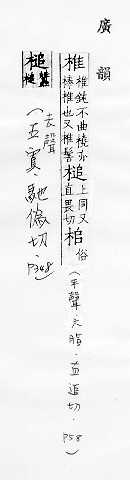 廣韻
椎椎鈍不曲橈亦棒椎也又椎髻槌上同又直畏切棓俗
(平聲.六脂.直追切.P58)
槌
(去聲)
(五寘.馳偽切.P348)